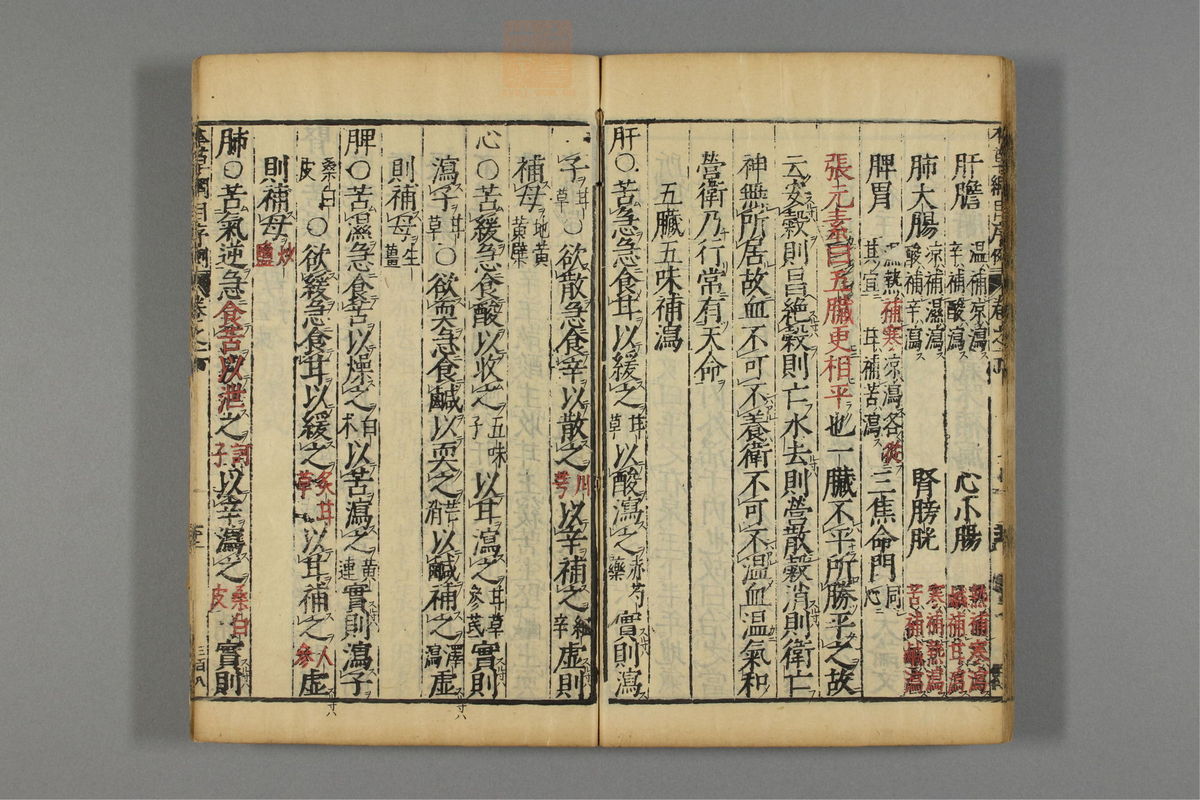 肝膽 温補凉瀉 辛補酸瀉 心小腸 熱補寒瀉 鹹補甘瀉
肺大腸 凉補温瀉 酸補辛瀉 腎膀胱 寒補熱瀉 苦補鹹瀉
脾胃 温熱補寒凉瀉各從其宜 甘補苦瀉 三焦命門 同心
張元素曰五臟更相平也一臟不平所勝平之故
云安穀則昌絶穀則亡水去則營散穀消則衛亡
神無所居故血不可不養衛不可不温血温氣和
營衛乃行常有天命
五臟五味補瀉
肝○苦急急食甘以緩之 甘草 以酸瀉之 赤芍藥 實則瀉
子 甘草 ○欲散急食辛以散之 川芎 以辛補之 細辛 虛則
補母 地黄 黄蘗
心○苦緩急食酸以收之 五味子 以甘瀉之 甘草參芪 實則
瀉子 甘草 ○欲耎急食鹹以耎之 芒消 以鹹補之 澤瀉 虛
則補母 生薑
脾○苦濕急食苦以燥之 白朮 以苦瀉之 黄連 實則瀉子
桑白皮 ○欲緩急食甘以緩之 炙甘草 以甘補之 人參 虛
則補母 炒鹽
肺○苦氣逆急食苦以泄之 訶子 以辛瀉之 桑白皮 實則
三百八